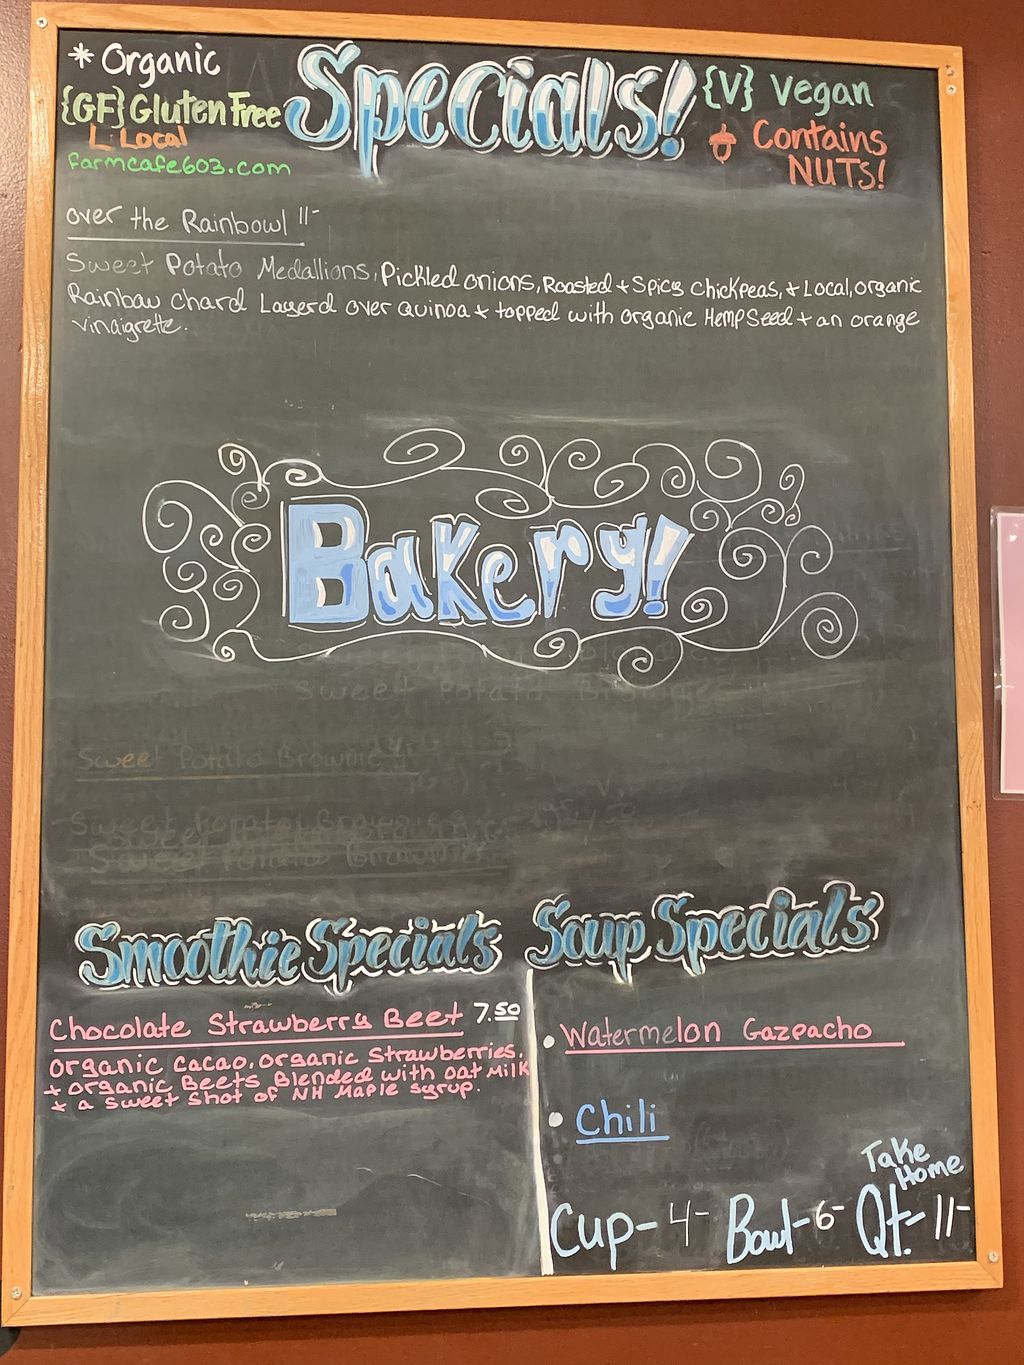 * Organic
{GF} Gluten Free
L: Local
farmcafe603.com
Specials!
{V} Vegan
Contains
NUTS!
over the Rainbowl 11-
Sweet Potato Medallions, Pickled onions, Roasted + Spicy Chickpeas, + Local, organic
Rainbow Chard Layerd over Quinoa + topped with organic Hemp Seed + an orange
vinaigrette.
Bakery!
Sweet Potato Brownie
Smoothie Specials
Chocolate Strawberry Beet 7.50
organic Cacao, organic Strawberries,
+ organic Beets Blended with oat Milk
+ a Sweet Shot of NH Maple Syrup.
Soup Specials
• Watermelon Gazpacho
• Chili
Take
Home
Cup- 4- Bowl- 6- Qt.- 11-